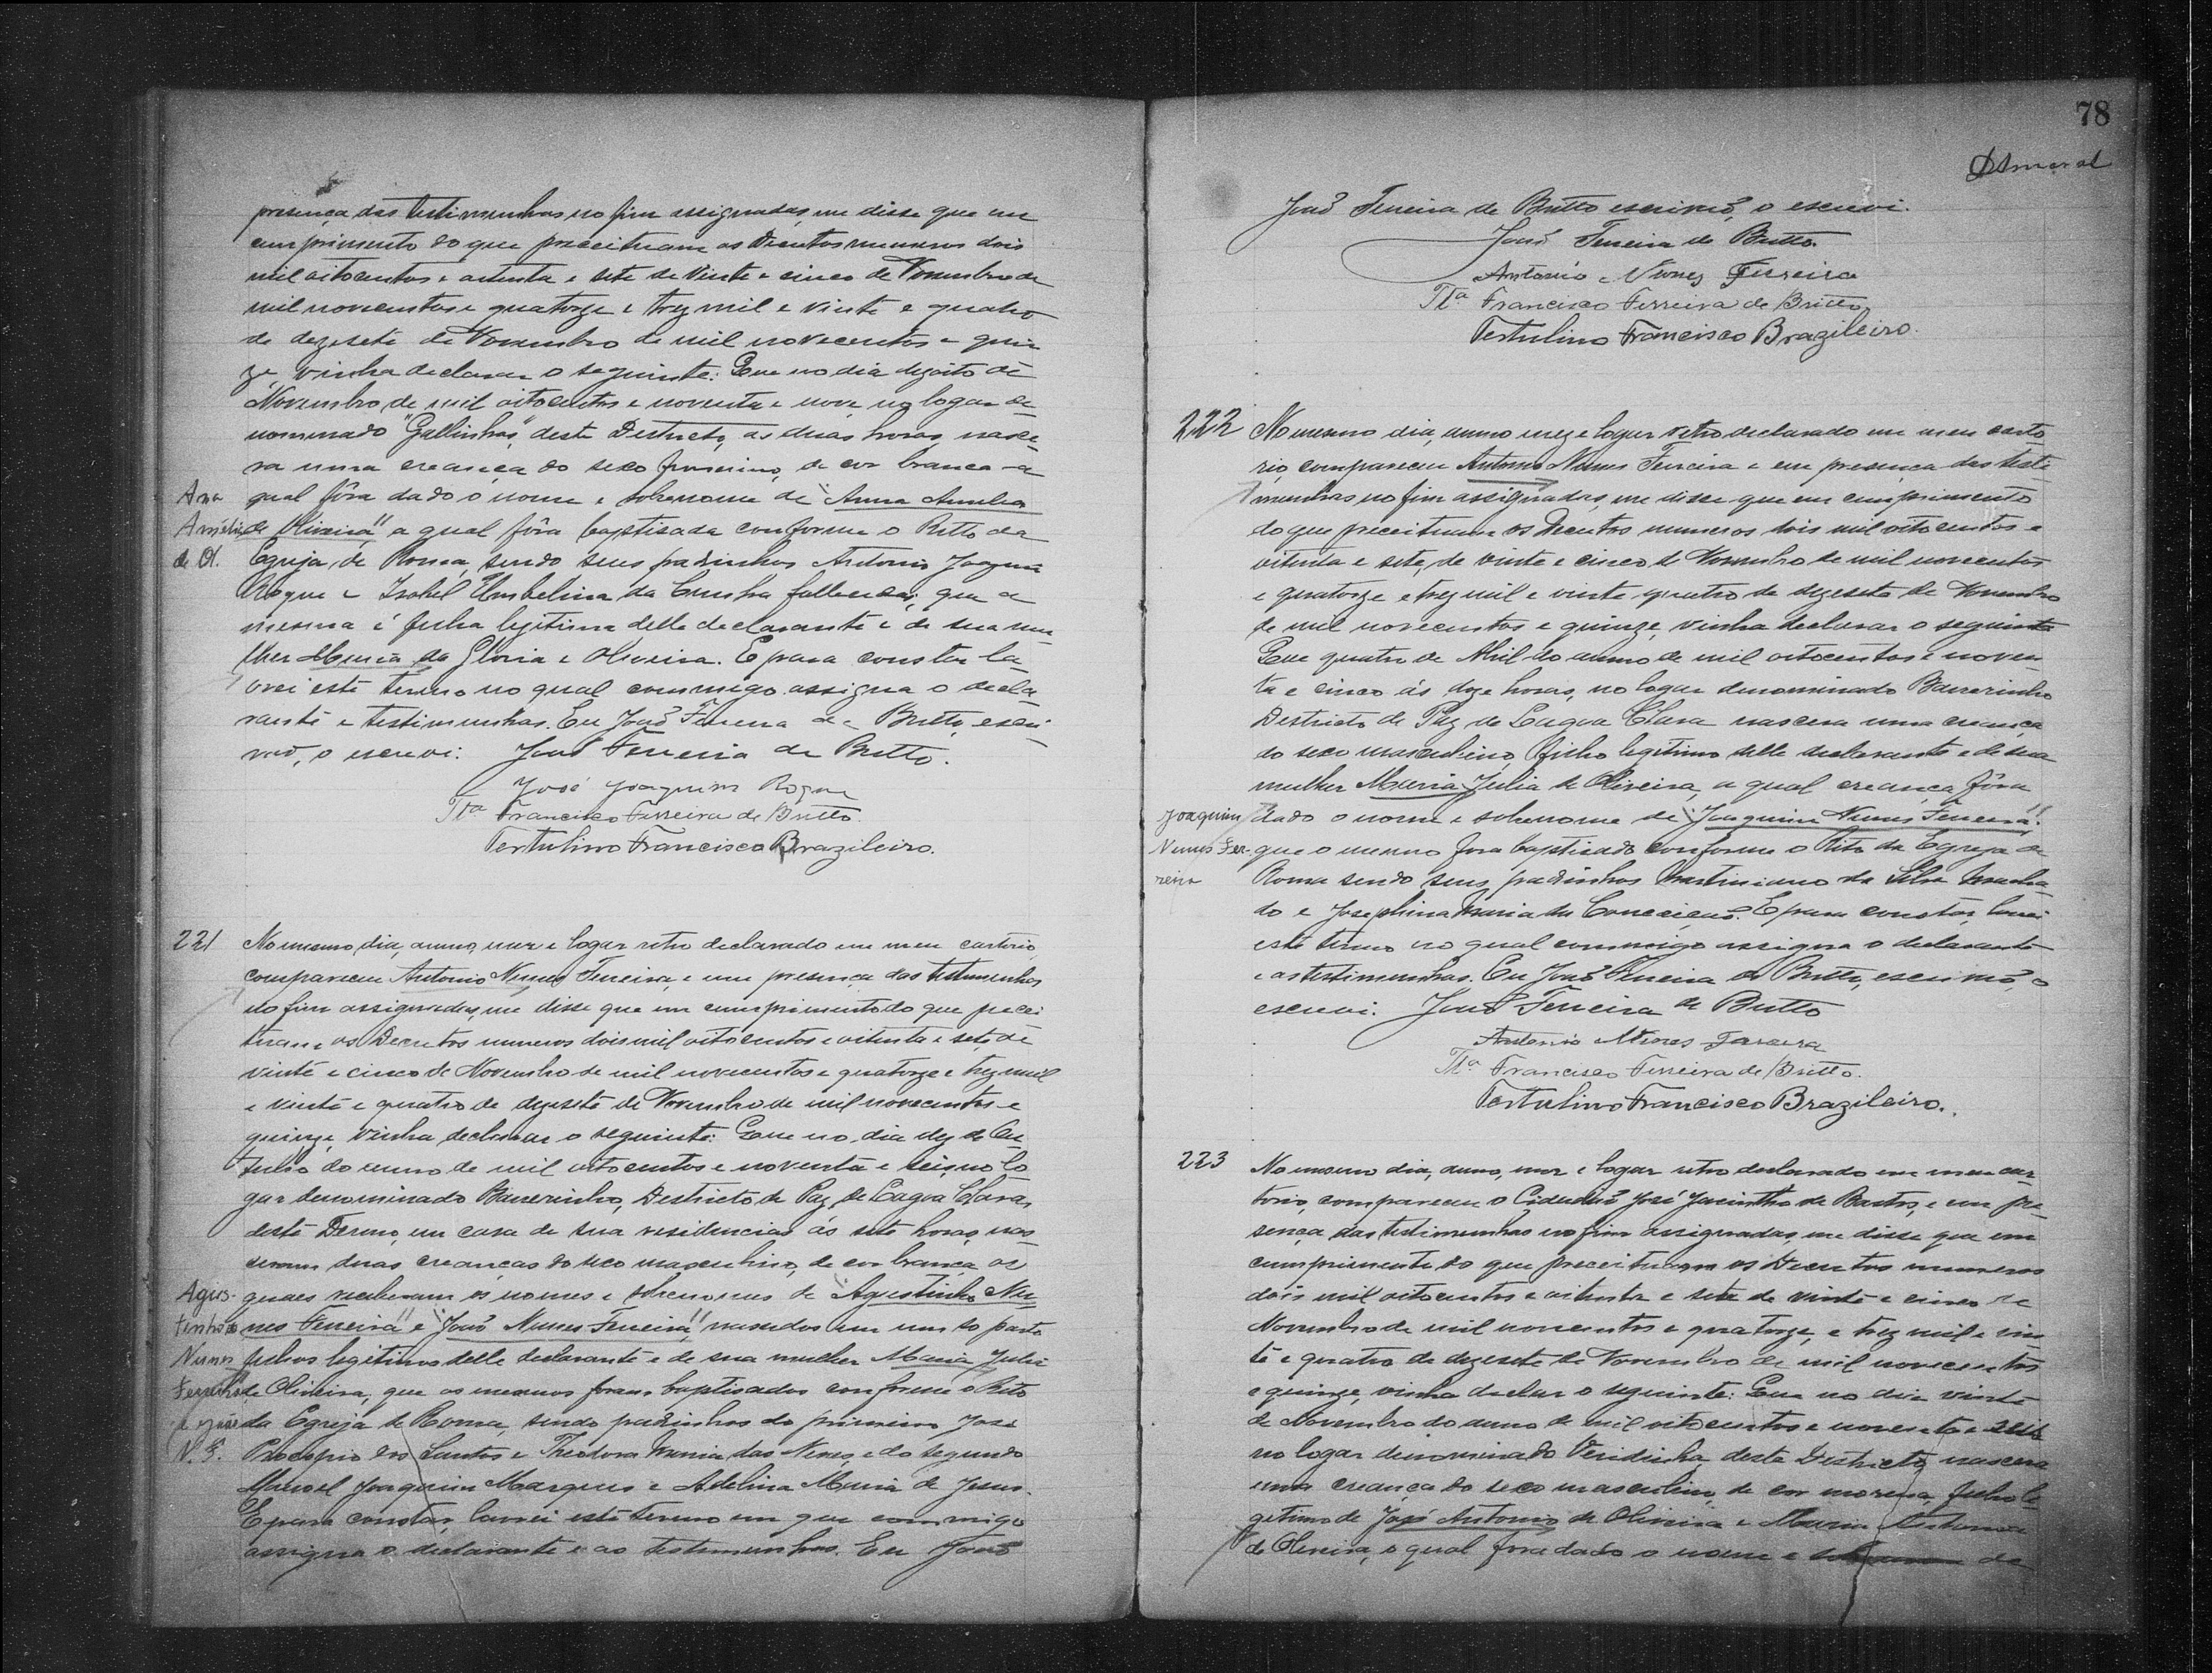 presença das testimunhas no fim assignadas, me disse que em
cumprimento do que preceituam os Decretos numeros dois
mil oitocentos e oitenta e sete de vinte e cinco de Novembro de
mil novecentos e quatorze e trez mil e vinte e quatro
de dezesete de Novembro de mil novecentos e quin
ze, vinha declarar o seguinte: Que no dia dezoito de
Novembro de mil oitocentos e noventa e nove no logar de
nominado "Gallinhas", deste Destricto, as duas horas, nasce
ra uma creança do sexo feminino, de cor branca a
Ana qual fôra dado o nome e sobrenome de "Anna Amelia
Amelia de Oliveira" a qual fôra baptisada conforme o Ritto da
de Ol. Egreja de Roma, sendo seus padrinhos Antonio Joaquim
Roque e Izabel Umbelina da Cunha, que a
mesma é filha legitima delle declarante e de sua mu
lher Maria da Gloria e Oliveira. E para constar la
vrei este termo no qual commigo assigna o decla
rante e testimunhas. Eu João Ferreira de Britto, escri
vão, o escrevi: João Ferreira de Britto.
José Joaquim Roque
Tta Francisco Ferreira de Britto.
Tertulino Francisco Brazileiro.
221 No mesmo dia, anno, mez e logar retro declarado em meu cartorio,
compareceu Antonio Nunes Ferreira, e em presença das testimunhas
no fim assignadas, me disse que em cumprimento do que precei
tuam os Decretos numeros dois mil oitocentos e oitenta e sete, de
vinte e cinco de Novembro de mil novecentos e quatorze e trez mil
e vinte e quatro de dezesete de Novembro de mil novecentos e
quinze, vinha declarar o seguinte: Que no dia dez de Ou
tubro do anno de mil oitocentos e noventa e seis, no lo
gar denominado Barreirinho, Destricto de Paz de Lagoa Clara,
deste Termo, em casa de sua residencia ás sete horas, nas
ceram duas creanças do sexo masculino, de cor branca, os
Agos- quaes receberam os nomes e sobrenomes de "Agostinho Nu
tinho nes Ferreira" e "João Nunes Ferreira", nascidos em um só parto
Nunes filhos legitimos delle declarante e de sua mulher Maria Julia
Ferreira de Oliveira, que os mesmos foram baptisados conforme o Rito
e João da Egreja de Roma, sendo padrinhos do primeiro José
N. F. Procopio dos Santos e Theodora Maria das Neves, e do segundo
Manoel Joaquim Marques e Adelina Maria de Jesus.
E para constar, lavrei este termo em que commigo
assigna o declarante e as testimunhas. Eu João
78
DAmaral
João Ferreira de Britto escrivão, o escrevi.
João Ferreira de Britto.
Antonio Nunes Ferreira
Tta Francisco Ferreira de Britto
Tertulino Francisco Brazileiro.
222 No mesmo dia, anno mez e logar retro declarado em meu carto
rio, compareceu Antonio Nunes Ferreira e em presença das teste
munhas no fim assignadas, me disse que em cumprimento
do que preceituam os Decretos numeros dois mil oitocentos e
oitenta e sete, de vinte e cinco de Novembro de mil novecentos
e quatorze e trez mil e vinte quatro de dezesete de Novembro
de mil novecentos e quinze, vinha declarar o seguinte
Que quatro de Abril do anno de mil oitocentos e noven
ta e cinco ás doze horas, no logar denominado Barreirinho
Destricto de Paz de Lagoa Clara nascera uma creança
do sexo masculino, filho legitimo delle declarante e de sua
mulher Maria Julia de Oliveira, a qual creança fôra
Joaquim dado o nome e sobrenome de "Joaquim Nunes Ferreira";
Nunes Fer- que o mesmo fora baptisado conforme o Rito da Egreja de
reira Roma sendo seus padrinhos Martiniano da Silva Macha
do e Josephina Maria da Conceição. E para constar, lavrei
este termo no qual commigo assigna o declarante
e as testimunhas. Eu João Ferreira de Britto, escrivão, o
escrevi. João Ferreira de Britto
Antonio Nunes Fareira
Tta Francisco Ferreira de Britto.
Tertulino Francisco Brazileiro.
223 No mesmo dia, anno, mez e logar retro declarado em meu car
torio, compareceu o Cidadão José Jacintho de Bastos, e em pre
sença das testimunhas no fim assignadas, me disse que em
cumprimento do que preceituam os Decretos numeros
dois mil oitocentos e oitenta e sete de vinte e cinco de
Novembro de mil novecentos e quatorze, e trez mil e vin
te e quatro de dezesete de Novembro de mil novecentos
e quinze, vinha declarar o seguinte: Que no dia vinte
de Novembro do anno de mil oitocentos e noventa e sete
no logar denominado Veridinha, deste Destricto, nascera
uma creança do sexo masculino, de cor morena, filho le
gitimo de José Antonio de Oliveira e Maria Antonia
de Oliveira, o qual fora dado o nome e sobrenome de